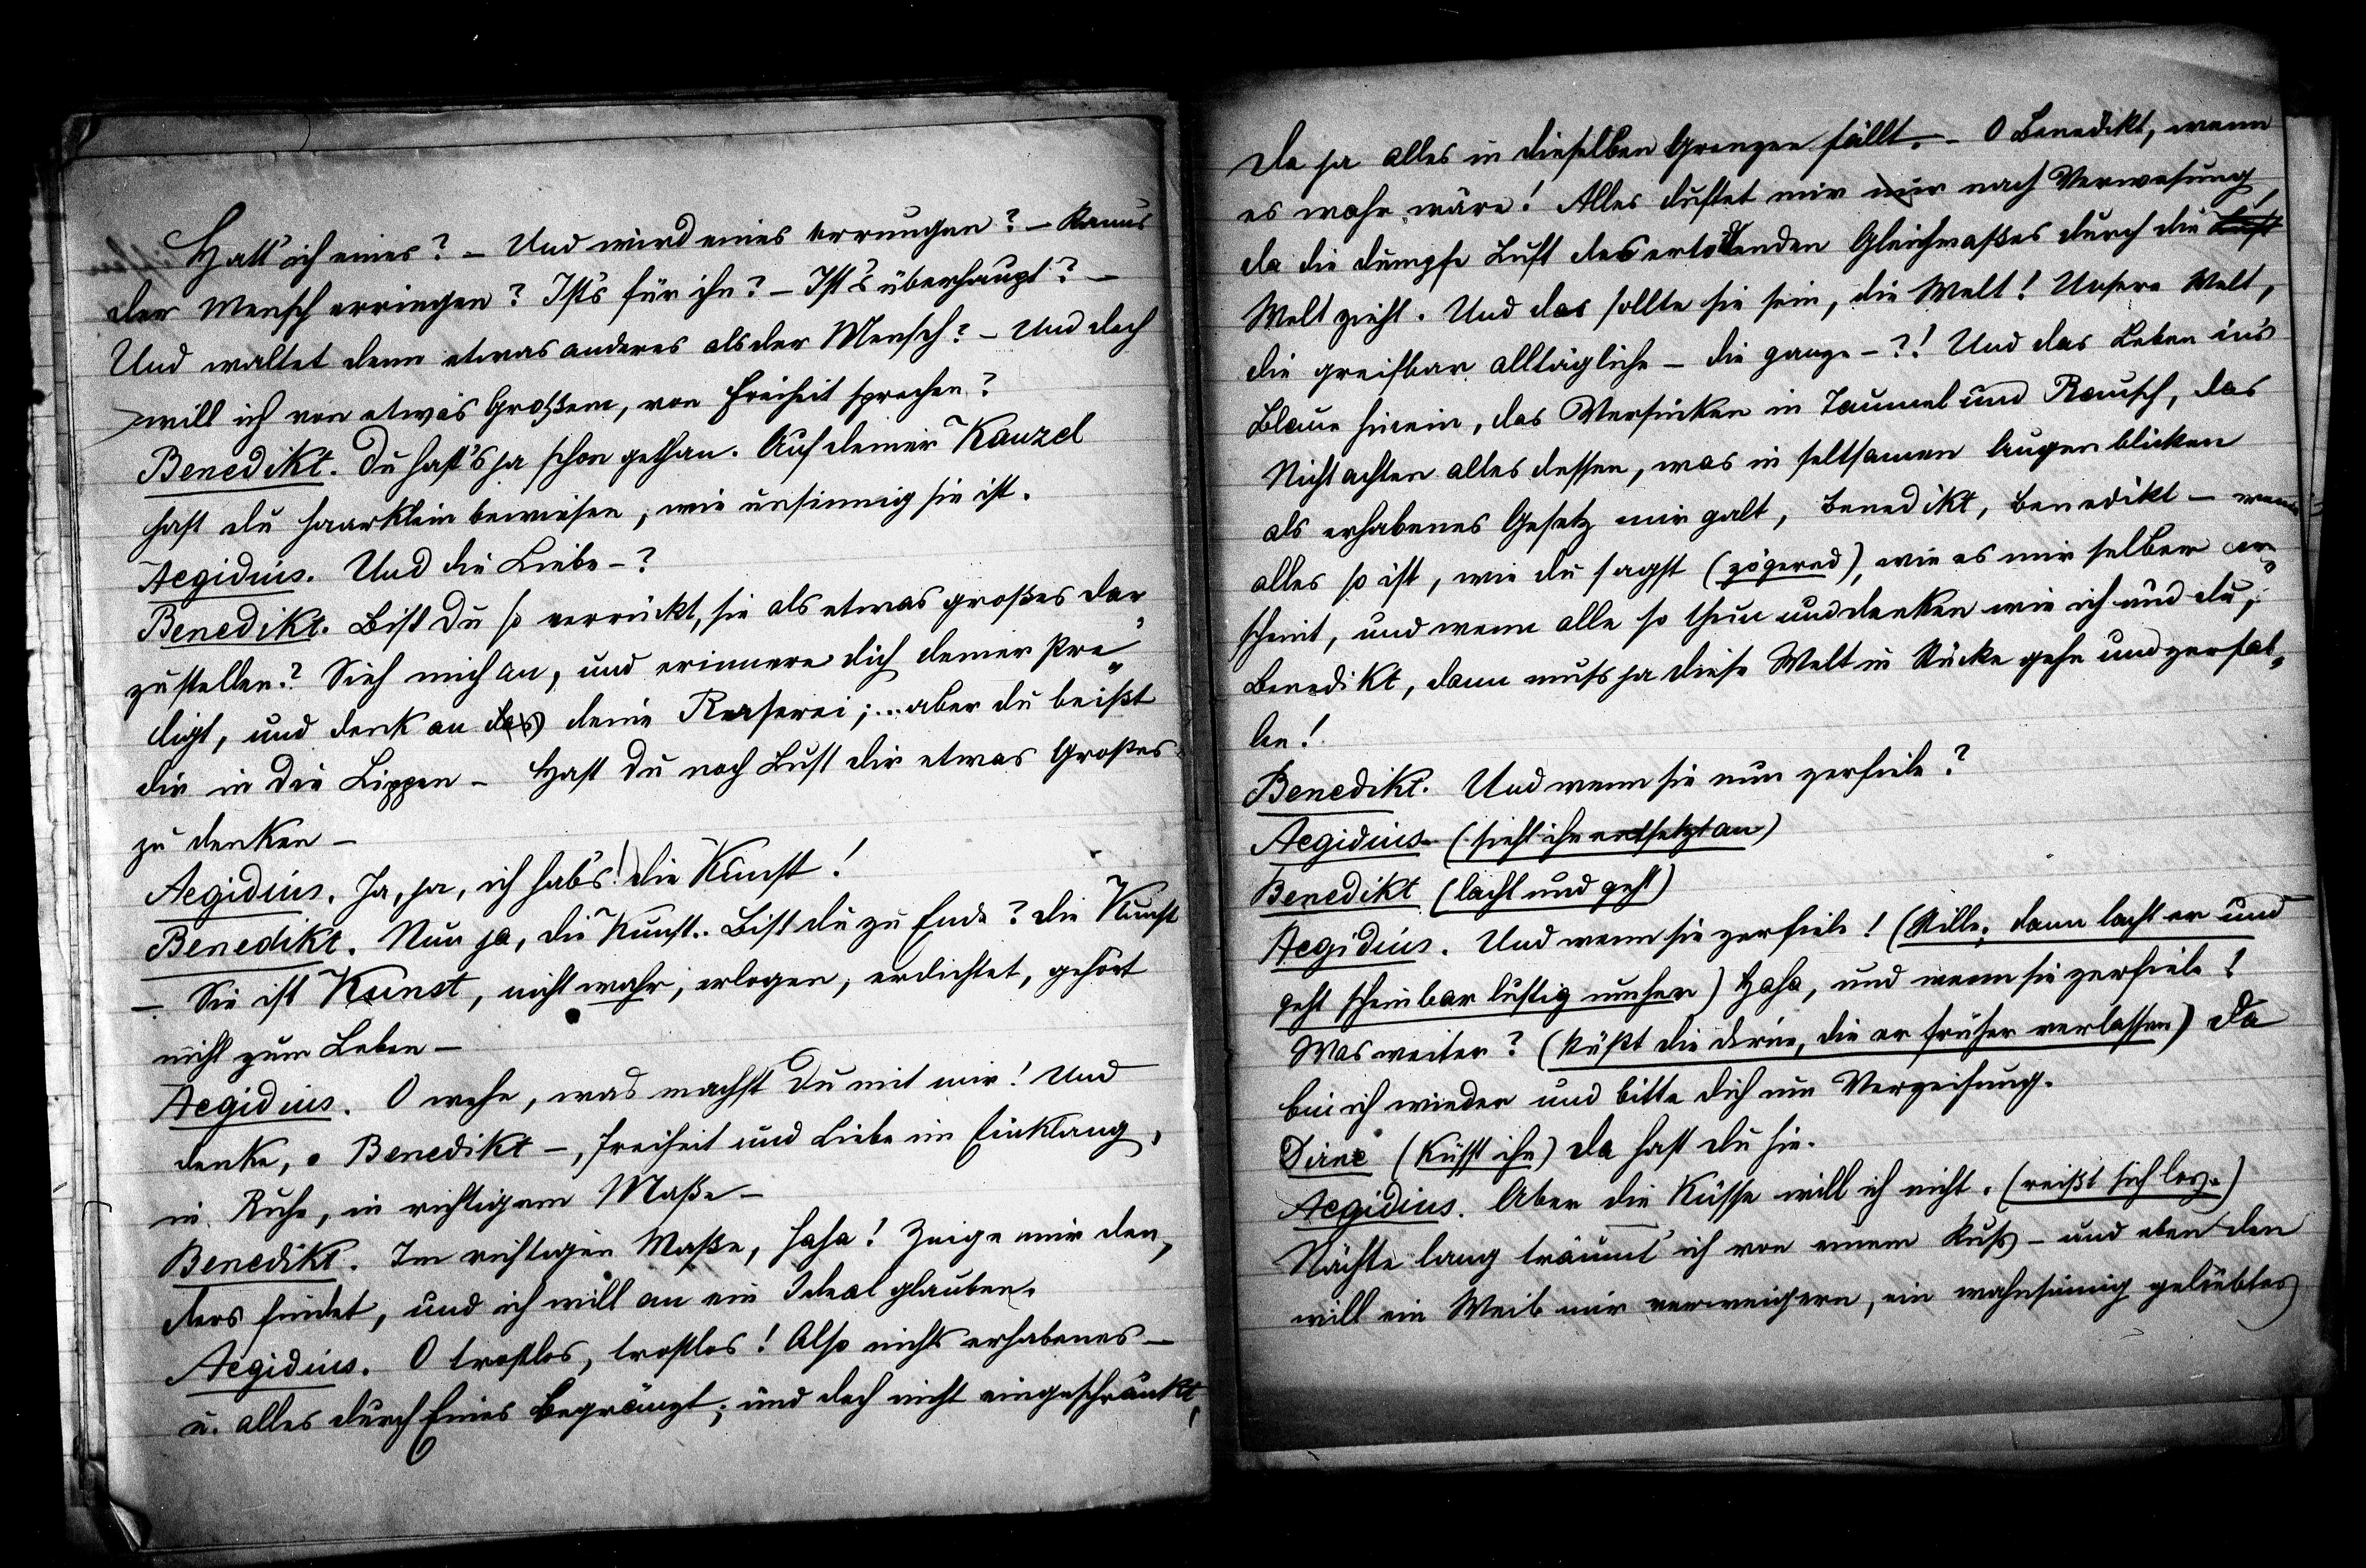 Hatt' ich eines? – Und wird eines errungen? – Kann's
der Mensch erringen? Ist's für ihn? – Ist's überhaupt? –
Und waltet denn etwas anderes als der Mensch? – Und doch
will ich von etwas Großem, von Freiheit sprechen?
Benedikt. Du hast's ja schon gethan. Auf deiner Kanzel
hast du haarklein bewiesen, wie unsinnig sie ist.
Aegidius. Und die Liebe –?
Benedikt. Bist Du so verrückt, sie als etwas großes dar=
zustellen? Sieh mich an, und erinnere dich deiner Pre=
digt, und denk an das deine Raserei; ... aber du beißt
dir in die Lippen – Hast Du noch Lust dir etwas Großes
zu denken –
Aegidius. Ja, ja, ich hab's! die Kunst!
Benedikt. Nun ja, die Kunst.. Bist du zu Ende? Die Kunst
– Sie ist Kunst, nicht wahr, erlogen, erdichtet, gehört
nicht zum Leben –
Aegidius. O wehe, was machst Du mit mir! Und
denke, o Benedikt –, Freiheit und Liebe im Einklang,
in Ruhe, in richtigem Maße –
Benedikt. Im richtigen Maße, haha! Zeige mir den,
ders findet, und ich will an ein Ideal glauben.
Aegidius. O trostlos, trostlos! Also nichts erhabenes –
u. alles durch Eines begränzt; und doch nicht eingeschränkt,
da ja alles in dieselben Grenzen fällt. – O Benedikt, wenn
es wahr wäre! Alles duftet mir nur nach Verwesung,
da die dumpfe Luft des ertödtenden Gleichmaßes durch die Luft
Welt zieht. Und das sollte sie sein, die Welt! Unsere Welt,
die greifbar alltägliche – die ganze –?! Und das Leben in's
Blaue hinein, das Versinken in Taumel und Rausch, das
Nichtachten alles dessen, was in seltsamen Augenblicken
als erhabenes Gesetz mir galt, Benedikt, Benedikt – wenn
alles so ist, wie du sagst (zögernd), wie es mir selber er=
scheint, und wenn alle so thun und denken wie ich und du,
Benedikt, dann muß ja diese Welt in Stücke gehn und zerfal=
len!
Benedikt. Und wenn sie nun zerfiele?
Aegidius. (sieht ihn entsetzt an)
Benedikt (lacht und geht)
Aegidius. Und wenn sie zerfiele! (Stille, dann lacht er und
geht scheinbar lustig umher) Haha, und wenn sie zerfiele!
Was weiter? (küßt die Dirne, die er früher verlassen) Da
bin ich wieder und bitte dich um Verzeihung.
Dirne (küsst ihn) Da hast du sie.
Aegidius. Aber die Küsse will ich nicht. (reißt sich los.)
Nächte lang träumt' ich von einem Kuß – und eben den
will ein Weib mir verweigern, ein wahnsinnig geliebtes